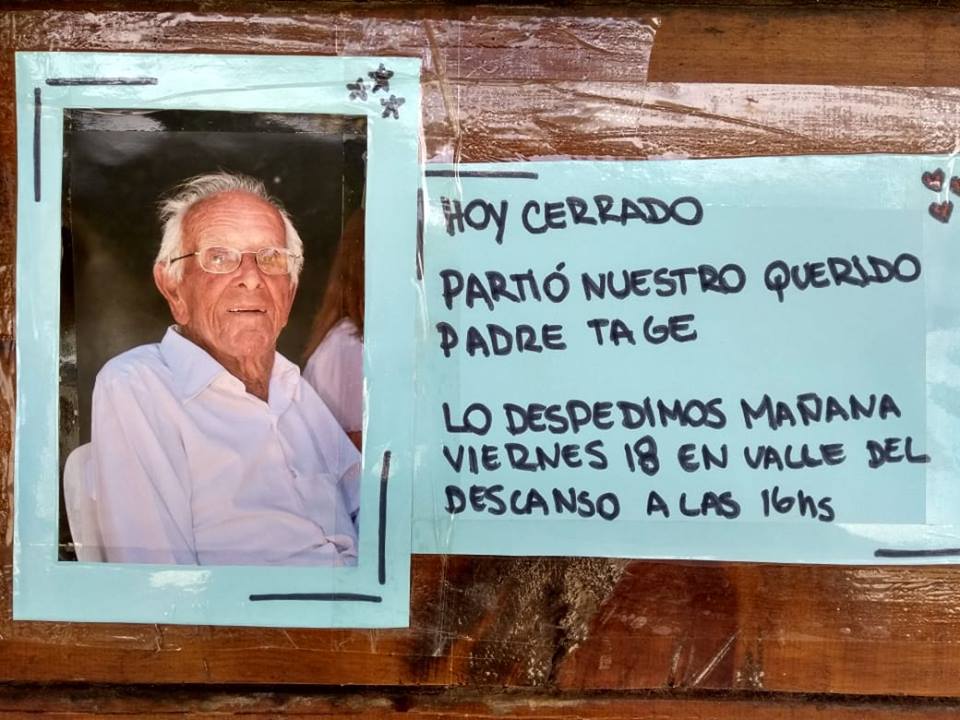 HOY CERRADO
PARTIÓ NUESTRO QUERIDO
PADRE TAGE
LO DESPEDIMOS MAÑANA
VIERNES 18 EN VALLE DEL
DESCANSO A LAS 16hs